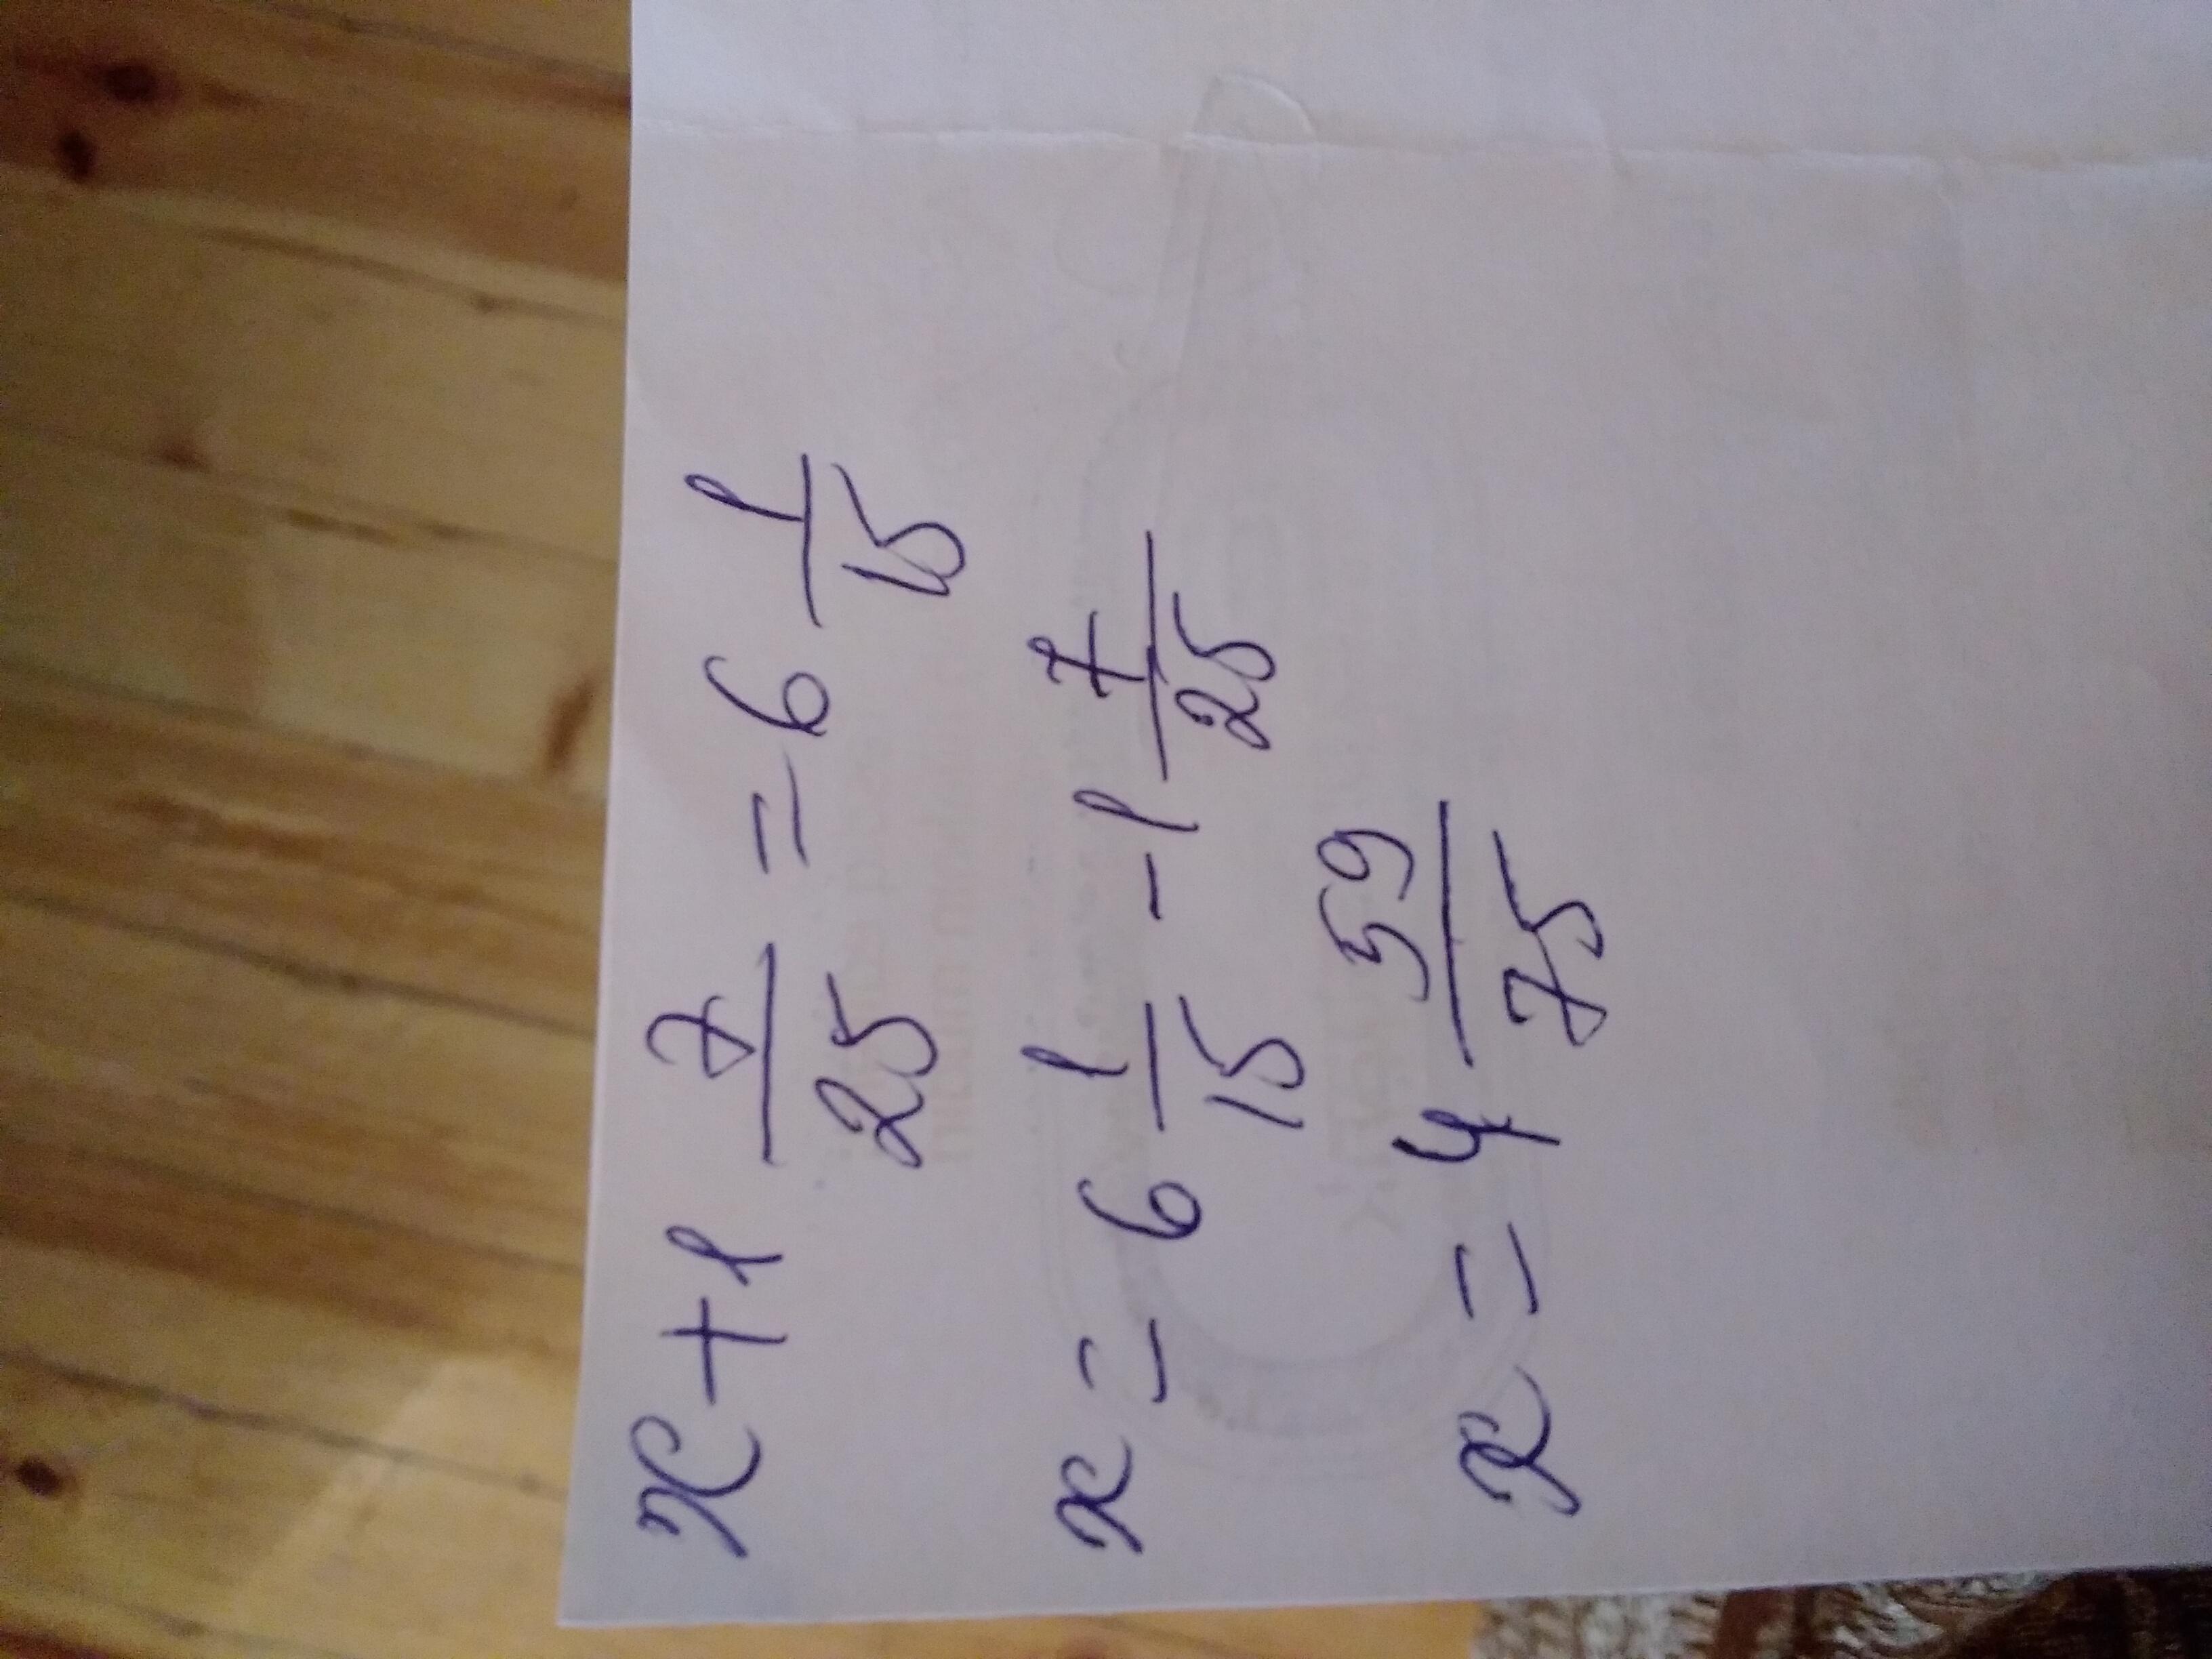 x + 1 7/25 = 6 1/15
x = 6 1/15 - 1 7/25
x = 4 59/75